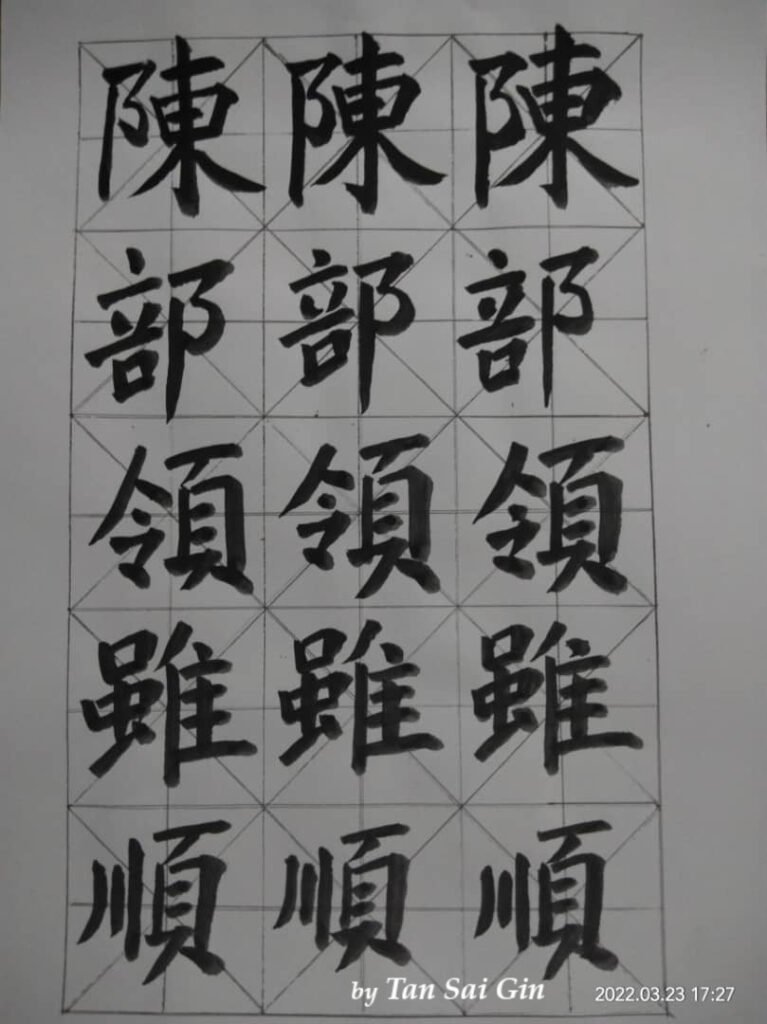 陳陳陳
部部部
領領領
雖雖雖
順順順
by Tan Sai Gin
2022.03.23 17:27